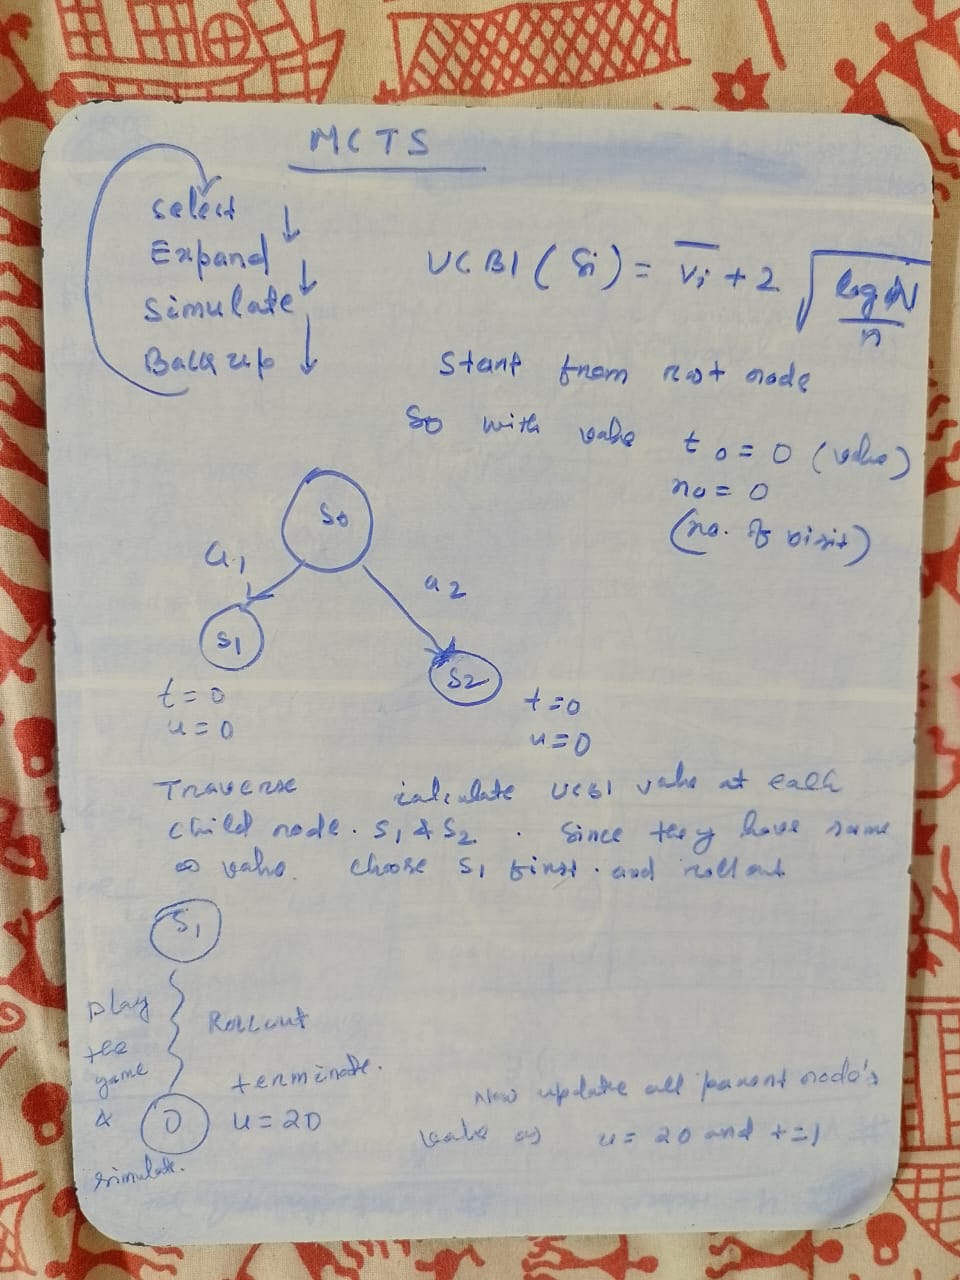 MCTS
Select ↓
Expand ↓
Simulate ↓
Back up
UCB1 (Si) = V̄i + 2 √(log N / n)
Start from root node
S0 with value t0 = 0 (value)
n0 = 0
(no. of visit)
S0
a1
a2
S1
S2
t=0
u=0
t=0
u=0
Traverse calculate UCB1 value at each
child node. S1 & S2. Since they have same
∞ value. choose S1 first. and rollout
S1
play
the
game
&
simulate.
Rollout
terminate.
0 u=20
Now update all parent node's
value as u= 20 and t=1